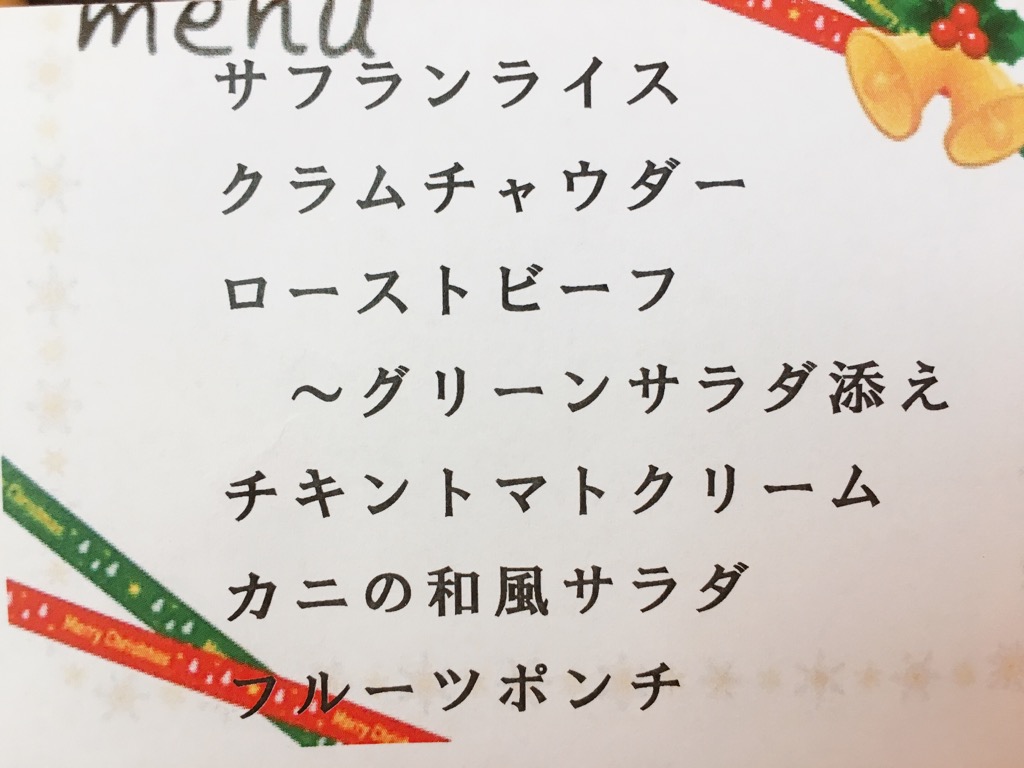 menu
サフランライス
クラムチャウダー
ローストビーフ
～グリーンサラダ添え
チキントマトクリーム
カニの和風サラダ
フルーツポンチ
Christmas
Merry Christmas
Merry Chri